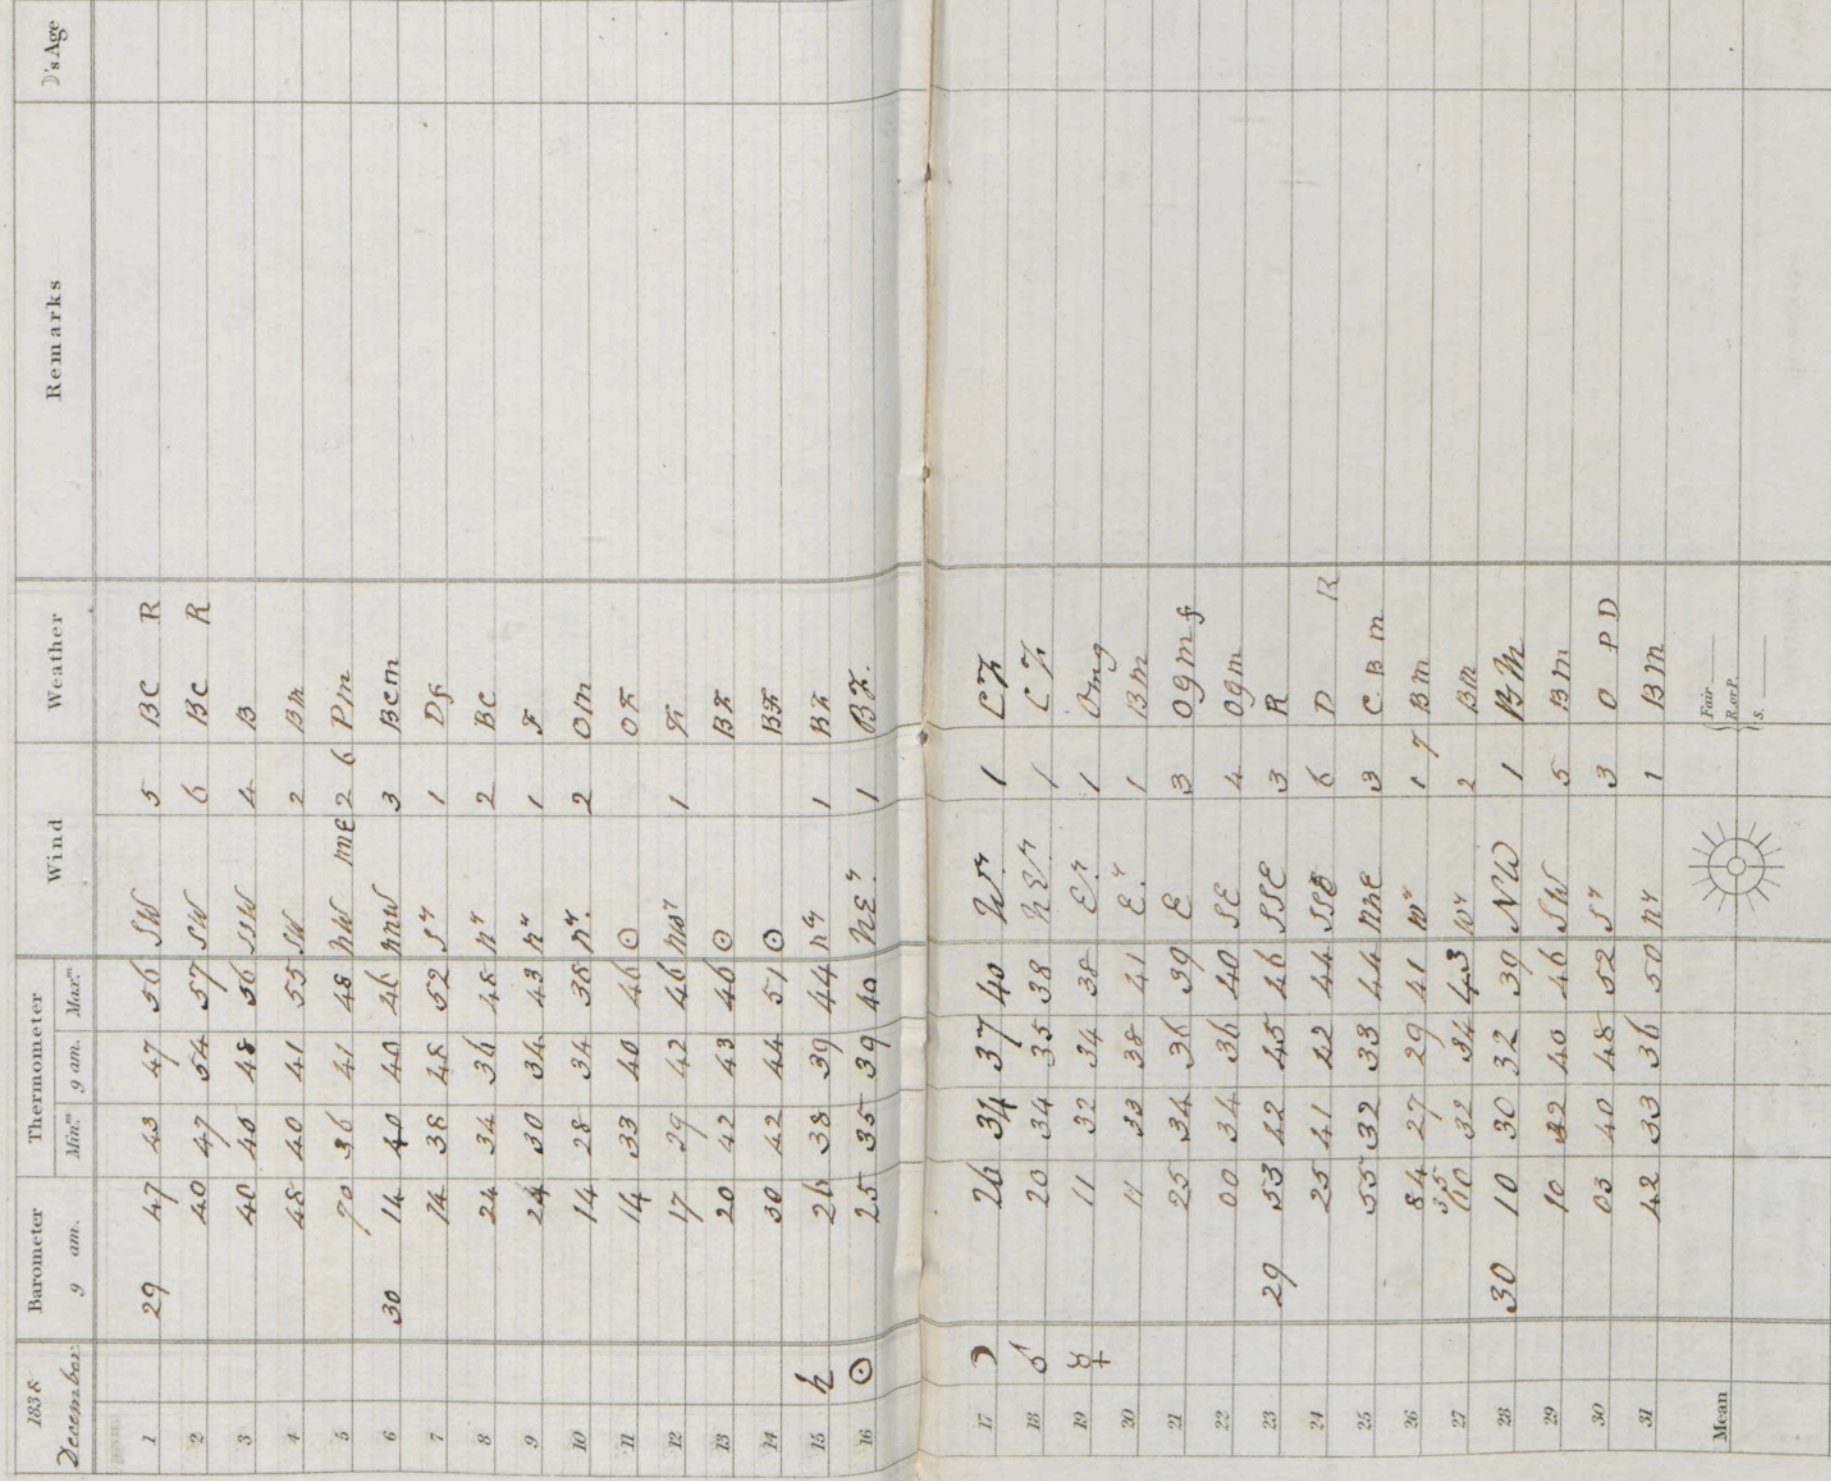 1838 December Barometer 9 am. Thermometer Min.m 9 am. Max.m Wind Weather Remarks ☽'s Age
1 29 47 43 47 56 SW 5 BC R
2 40 47 54 57 SW 6 BC R
3 40 40 48 56 SSW 4 B
4 48 40 41 55 SW 2 Bm
5 70 36 41 48 NW NNE 2 6 Pm
6 30 14 40 40 46 NNW 3 Bcm
7 14 38 48 52 Sy 1 Df
8 24 34 36 48 Ny 2 BC
9 24 30 34 43 Ny 1 F
10 14 28 34 38 Ny. 2 Om
11 14 33 40 46 ⊙ OF
12 17 29 42 46 NWy 1 F
13 20 42 43 46 ⊙ BF
14 30 42 44 51 ⊙ BF
15 ♄ 26 38 39 44 Ny 1 BF
16 ⊙ 25 35 39 40 NE.y 1 BF.
17 ☽ 26 34 37 40 W.y 1 CF
18 ♂ 20 34 35 38 NE.y 1 CF
19 ☿ 11 32 34 38 E.y 1 Omg
20 11 33 38 41 E.y 1 Bm
21 25 34 36 39 E 3 Ogmf
22 00 34 36 40 SE 4 Ogm
23 29 53 42 45 46 SSE 3 R
24 25 41 42 44 SSE 6 D R
25 55 32 33 44 NNE 3 C B m
26 84 27 29 41 Wy 1 7 Bm
27 35 60 32 34 43 Wy 2 Bm
28 30 10 30 32 39 NW 1 BM
29 10 32 40 46 SW 5 Bm
30 03 40 48 52 Sy 3 O P D
31 42 33 36 50 Ny 1 Bm
Mean Fair
R. or P.
S.